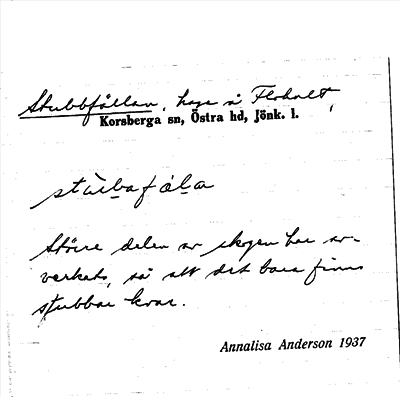 Stubbfållan, hage å Floholt,
Korsberga sn, Östra hd, Jönk. l.
stùbafåla
Större delen av skogen har av-
verkats, så att det bara finns
stubbar kvar.
Annalisa Anderson 1937